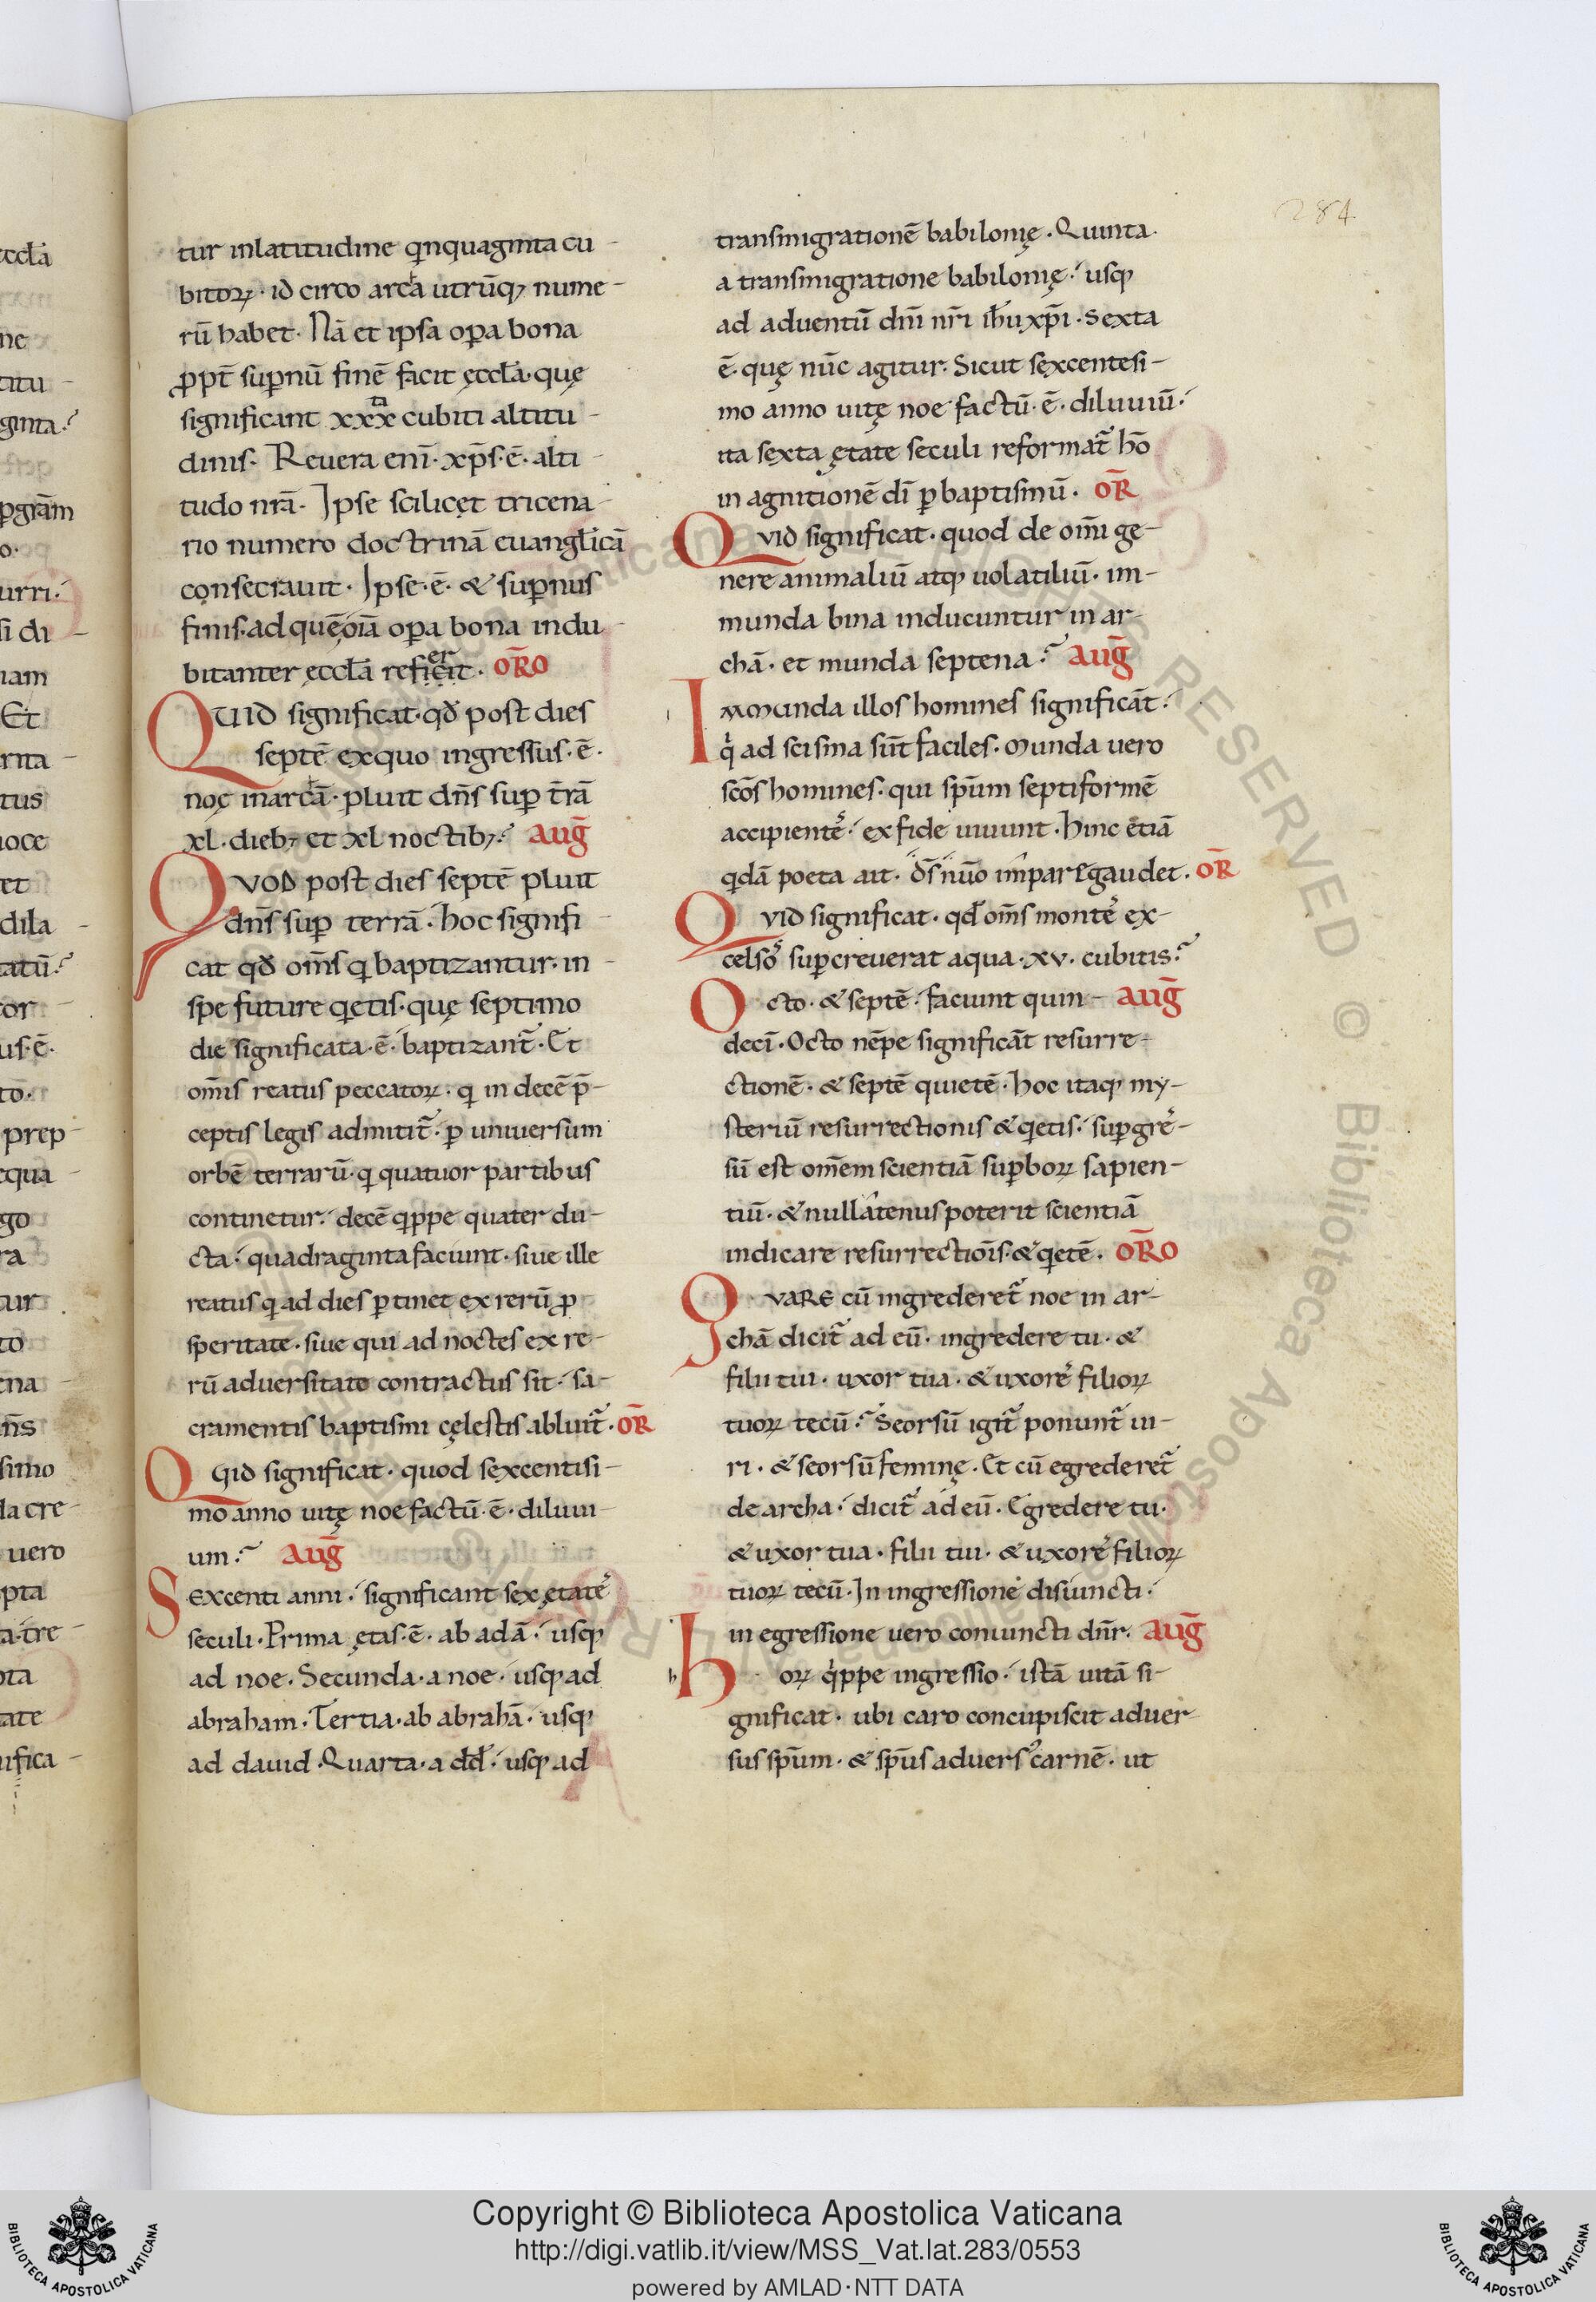 284
tur inlatitudine qnquaginta cu
bitoꝝ · id circo archa utrūq; nume
rū habet · Nā et ipsa oꝑa bona
ꝓpt̄ suꝑnū finē facit ęccła · quę
significant xxxta cubiti altitu
dinis · Reuera eni · xp̄s · ē · alti
tudo nrā · Ipse scilicet tricena
rio numero doctrinā euanglicā
consecrauit · Ipse · ē · & suꝑnus
finis · ad quē oīa oꝑa bona indu
bitanter ęccła referit · ORO
QUID significat · qđ post dies
septē exquo ingressus · ē ·
noę inarchā · pluit dn̄s suꝑ t̄rā
xl · dieb; et xl noctib;? AUG̅
QVOD post dies septē pluit
dn̄s suꝑ terrā · hoc signifi
cat qđ om̄s q baptizantur · in
spe future qetis · quę septimo
die significata · ē · baptizant̄ · Et
om̄is reatus peccatoꝝ · q in decē p̄
ceptis legis admitit̄ · ꝑ uniuersum
orbē terrarū · q quatuor partibus
continetur · decē qppe quater du
cta · quadraginta faciunt · siue ille
reatus q ad dies ꝑtinet ex rerū ꝓ
speritate · siue qui ad noctes ex re
rū aduersitate contractus sit · sa
cramentis baptismi cęlestis abluit̄ · OR̄
Qvid significat · quod sexcentisi
mo anno uitę noe factū · ē · diluui
um? AUG̅
Sexcenti anni · significant sex ętates
seculi · Prima ętas · ē · ab adā · usq;
ad noe · Secunda · a noe · usq; ad
abraham · Tertia · ab abrahā · usq;
ad dauid · Quarta · a dđ · usq; ad
transmigrationē babilonię · Quinta ·
a transmigratione babilonię · usq;
ad aduentū dn̄i nr̄i ih̄u xp̄i · Sexta
ē · quę nūc agitur · Sicut sexcentesi
mo anno uitę noe factū · ē · diluuiū ·
ita sexta ętate seculi reformat̄ hō
in agnitionē dī ꝑ baptismū · OR̄
Qvid significat · quod de om̄i ge
nere animaliū atq; uolatiliū · im
munda bina inducuntur in ar
chā · et munda septena? AUG̅
Immunda illos homines significāt ·
qi ad scisma sūt faciles · Munda uero
scōs homines · qui spūm septiformē
accipientes · ex fide uiuunt · Hinc etiā
qdā poeta ait · ds̄ nūo impare gaudet · OR̄
Qvid significat · qđ om̄s montes ex
celsos suꝑcreuerat aqua · xv · cubitis?
Octo · & septē · faciunt quin AUG̅
deci · Octo nēpe significāt resurre
ctionē · & septē quietē · hoc itaq; my
steriū resurrectionis & qetis · suꝑgres
sū est om̄em scientiā suꝑboꝝ sapien
tiū · & nullatenus poterit scientiā
indicare resurrectiōis · & qetē · ORO
QVARE cū ingrederet̄ noe in ar
chā dicit̄ ad eū · ingredere tu · &
filii tui · uxor tua · & uxores filioꝝ
tuoꝝ tecū? Seorsū igit̄ ponunt̄ ui
ri · & seorsū feminę · Et cū egrederet̄
de archa · dicit̄ ad eū · Egredere tu ·
& uxor tua · filii tui · & uxores filioꝝ
tuoꝝ tecū · In ingressione disiuncti ·
in egressione uero coniuncti dn̄r · AUG̅
Hoꝝ qippe ingressio · istā uitā si
gnificat · ubi caro concupiscit aduer
sus spūm · & spūs aduersus carnē · ut
Copyright © Biblioteca Apostolica Vaticana
http://digi.vatlib.it/view/MSS_Vat.lat.283/0553
powered by AMLAD·NTT DATA
BIBLIOTECA APOSTOLICA VATICANA
BIBLIOTECA APOSTOLICA VATICANA